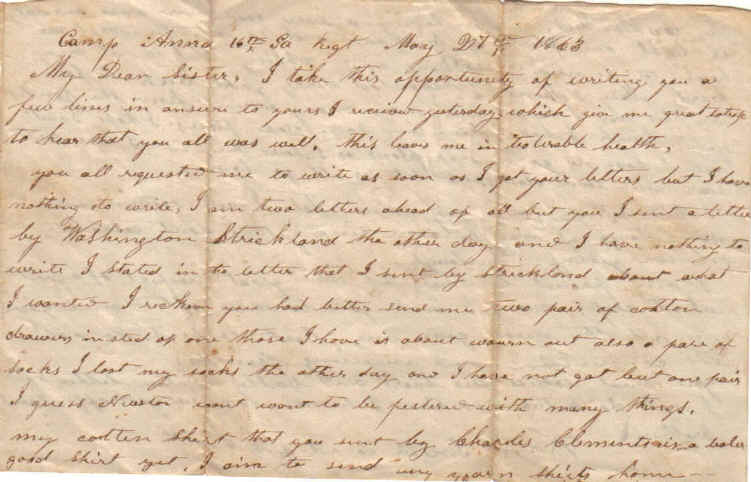 Camp Anna 16th Ga Regt May 27th 1863
My Dear Sister, I take this opportunity of writing you a
few lines in answer to yours I receive yesterday which give me great
to hear that you all was well. this leaves me in tolerable health,
you all requested me to write as soon as I got your letters but I have
nothing to write, I am two letters ahead of all but you I sent a letter
by Washington Strickland the other day and I have nothing to
write I stated in the letter that I sent by Strickland about what
I wanted I reckon you had better send me two pair of cotton
drawers in sted of one those I have is about wourn out also a pare of
socks I lost my socks the other day and I have not got but one pair
I guess Newton wont want to be pestered with many things.
my cotten shirt that you sent by Charles Clements is a
good shirt yet. I aim to send my yarn shirts home—